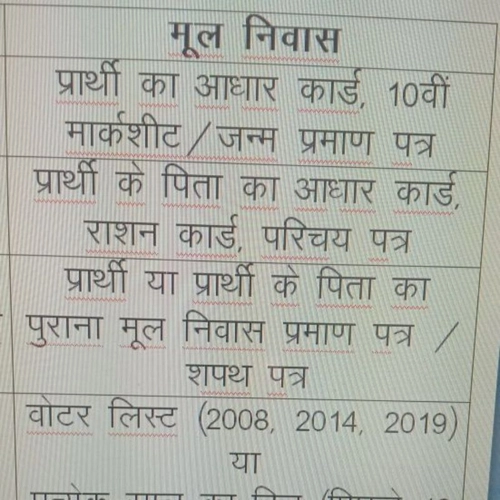 मूल निवास
प्रार्थी का आधार कार्ड, 10वीं
मार्कशीट / जन्म प्रमाण पत्र
प्रार्थी के पिता का आधार कार्ड,
राशन कार्ड, परिचय पत्र
प्रार्थी या प्रार्थी के पिता का
पुराना मूल निवास प्रमाण पत्र /
शपथ पत्र
वोटर लिस्ट (2008, 2014, 2019)
या